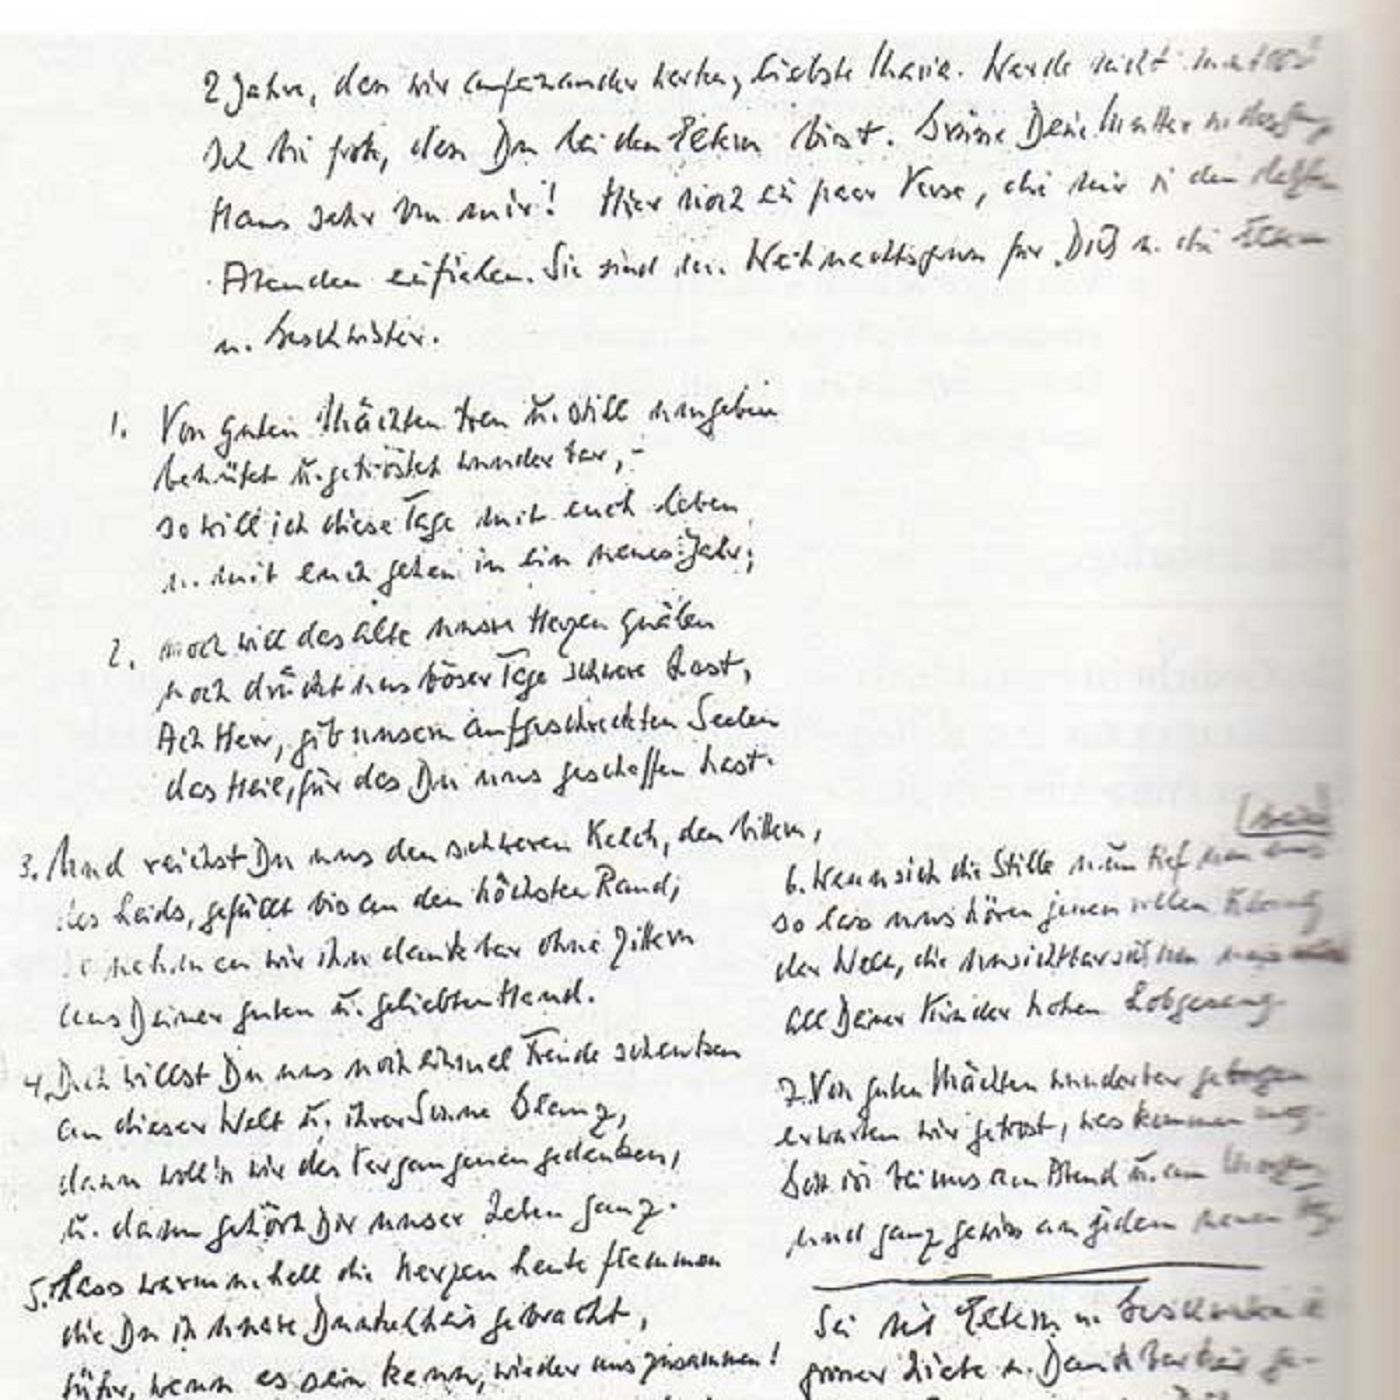 2 Jahre, dass wir aufeinander warten, liebste Maria. Werde nicht mutlos!
Ich bin froh, dass Du bei den Eltern bist. Grüsse Deine Mutter u. das ganze
Haus sehr von mir! Hier noch ein paar Verse, die mir in den letzten
Abenden einfielen. Sie sind der Weihnachtsgruss für Dich u. die Eltern
u. Geschwister.
1. Von guten Mächten treu u. still umgeben
behütet u. getröstet wunderbar, -
so will ich diese Tage mit euch leben
u. mit euch gehen in ein neues Jahr;
2. noch will das alte unsre Herzen quälen
noch drückt uns böser Tage schwere Last,
Ach Herr, gib unsern aufgeschreckten Seelen
das Heil, für das Du uns geschaffen hast.
3. Und reichst Du uns den schweren Kelch, den bittern,
des Leids, gefüllt bis an den höchsten Rand,
so nehmen wir ihn dankbar ohne Zittern
aus Deiner guten u. geliebten Hand.
4. Doch willst Du uns noch einmal Freude schenken
an dieser Welt u. ihrer Sonne Glanz,
dann woll'n wir des Vergangenen gedenken,
u. dann gehört Dir unser Leben ganz.
5. Lass warm u. hell die Kerzen heute flammen
die Du in unsre Dunkelheit gebracht,
führ, wenn es sein kann, wieder uns zusammen!
6. Wenn sich die Stille nun tief um uns
so lass uns hören jenen vollen Klang
der Welt, die unsichtbar sich um uns
all Deiner Kinder hohen Lobgesang.
7. Von guten Mächten wunderbar geborgen
erwarten wir getrost, was kommen mag.
Gott ist bei uns am Abend u. am Morgen,
und ganz gewiss an jedem neuen Tag.
Sei mit Eltern u. Geschwistern in
grosser Liebe u. Dankbarkeit